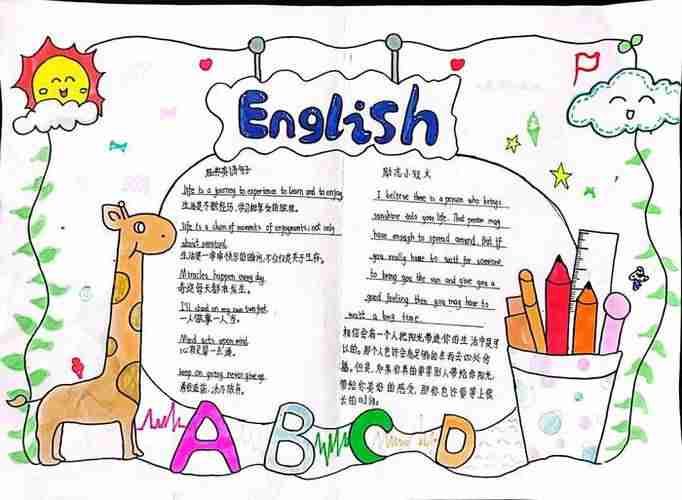 English
英语句子
life is a journey to experience to learn and to enjoy
生活是不断经历、学习和享受的旅程。
life is a chain of moments of enjoyments; not only
about survival.
生活是一串串快乐的瞬间,不仅仅是关于生存。
Miracles happen every day.
奇迹每天都在发生。
I'll stand on my own two feet.
一人做事一人当。
Mind acts upon mind.
心有灵犀一点通。
keep on going never give up.
勇往直前,决不放弃。
励志小短文
I believe there is a person who brings
sunshine into your life. That person may
have enough to spread around. But if
you really have to wait for someone
to bring you the sun and give you a
good feeling then you may have to
wait a long time.
相信会有一个人把阳光带进你的生活中是可
以的。那个人也许会有足够的东西去四处分
播。但是,如果你真的要等别人带给你阳光,
带给你美好的感受,那你也许要等上很
长的时间。
A B C D